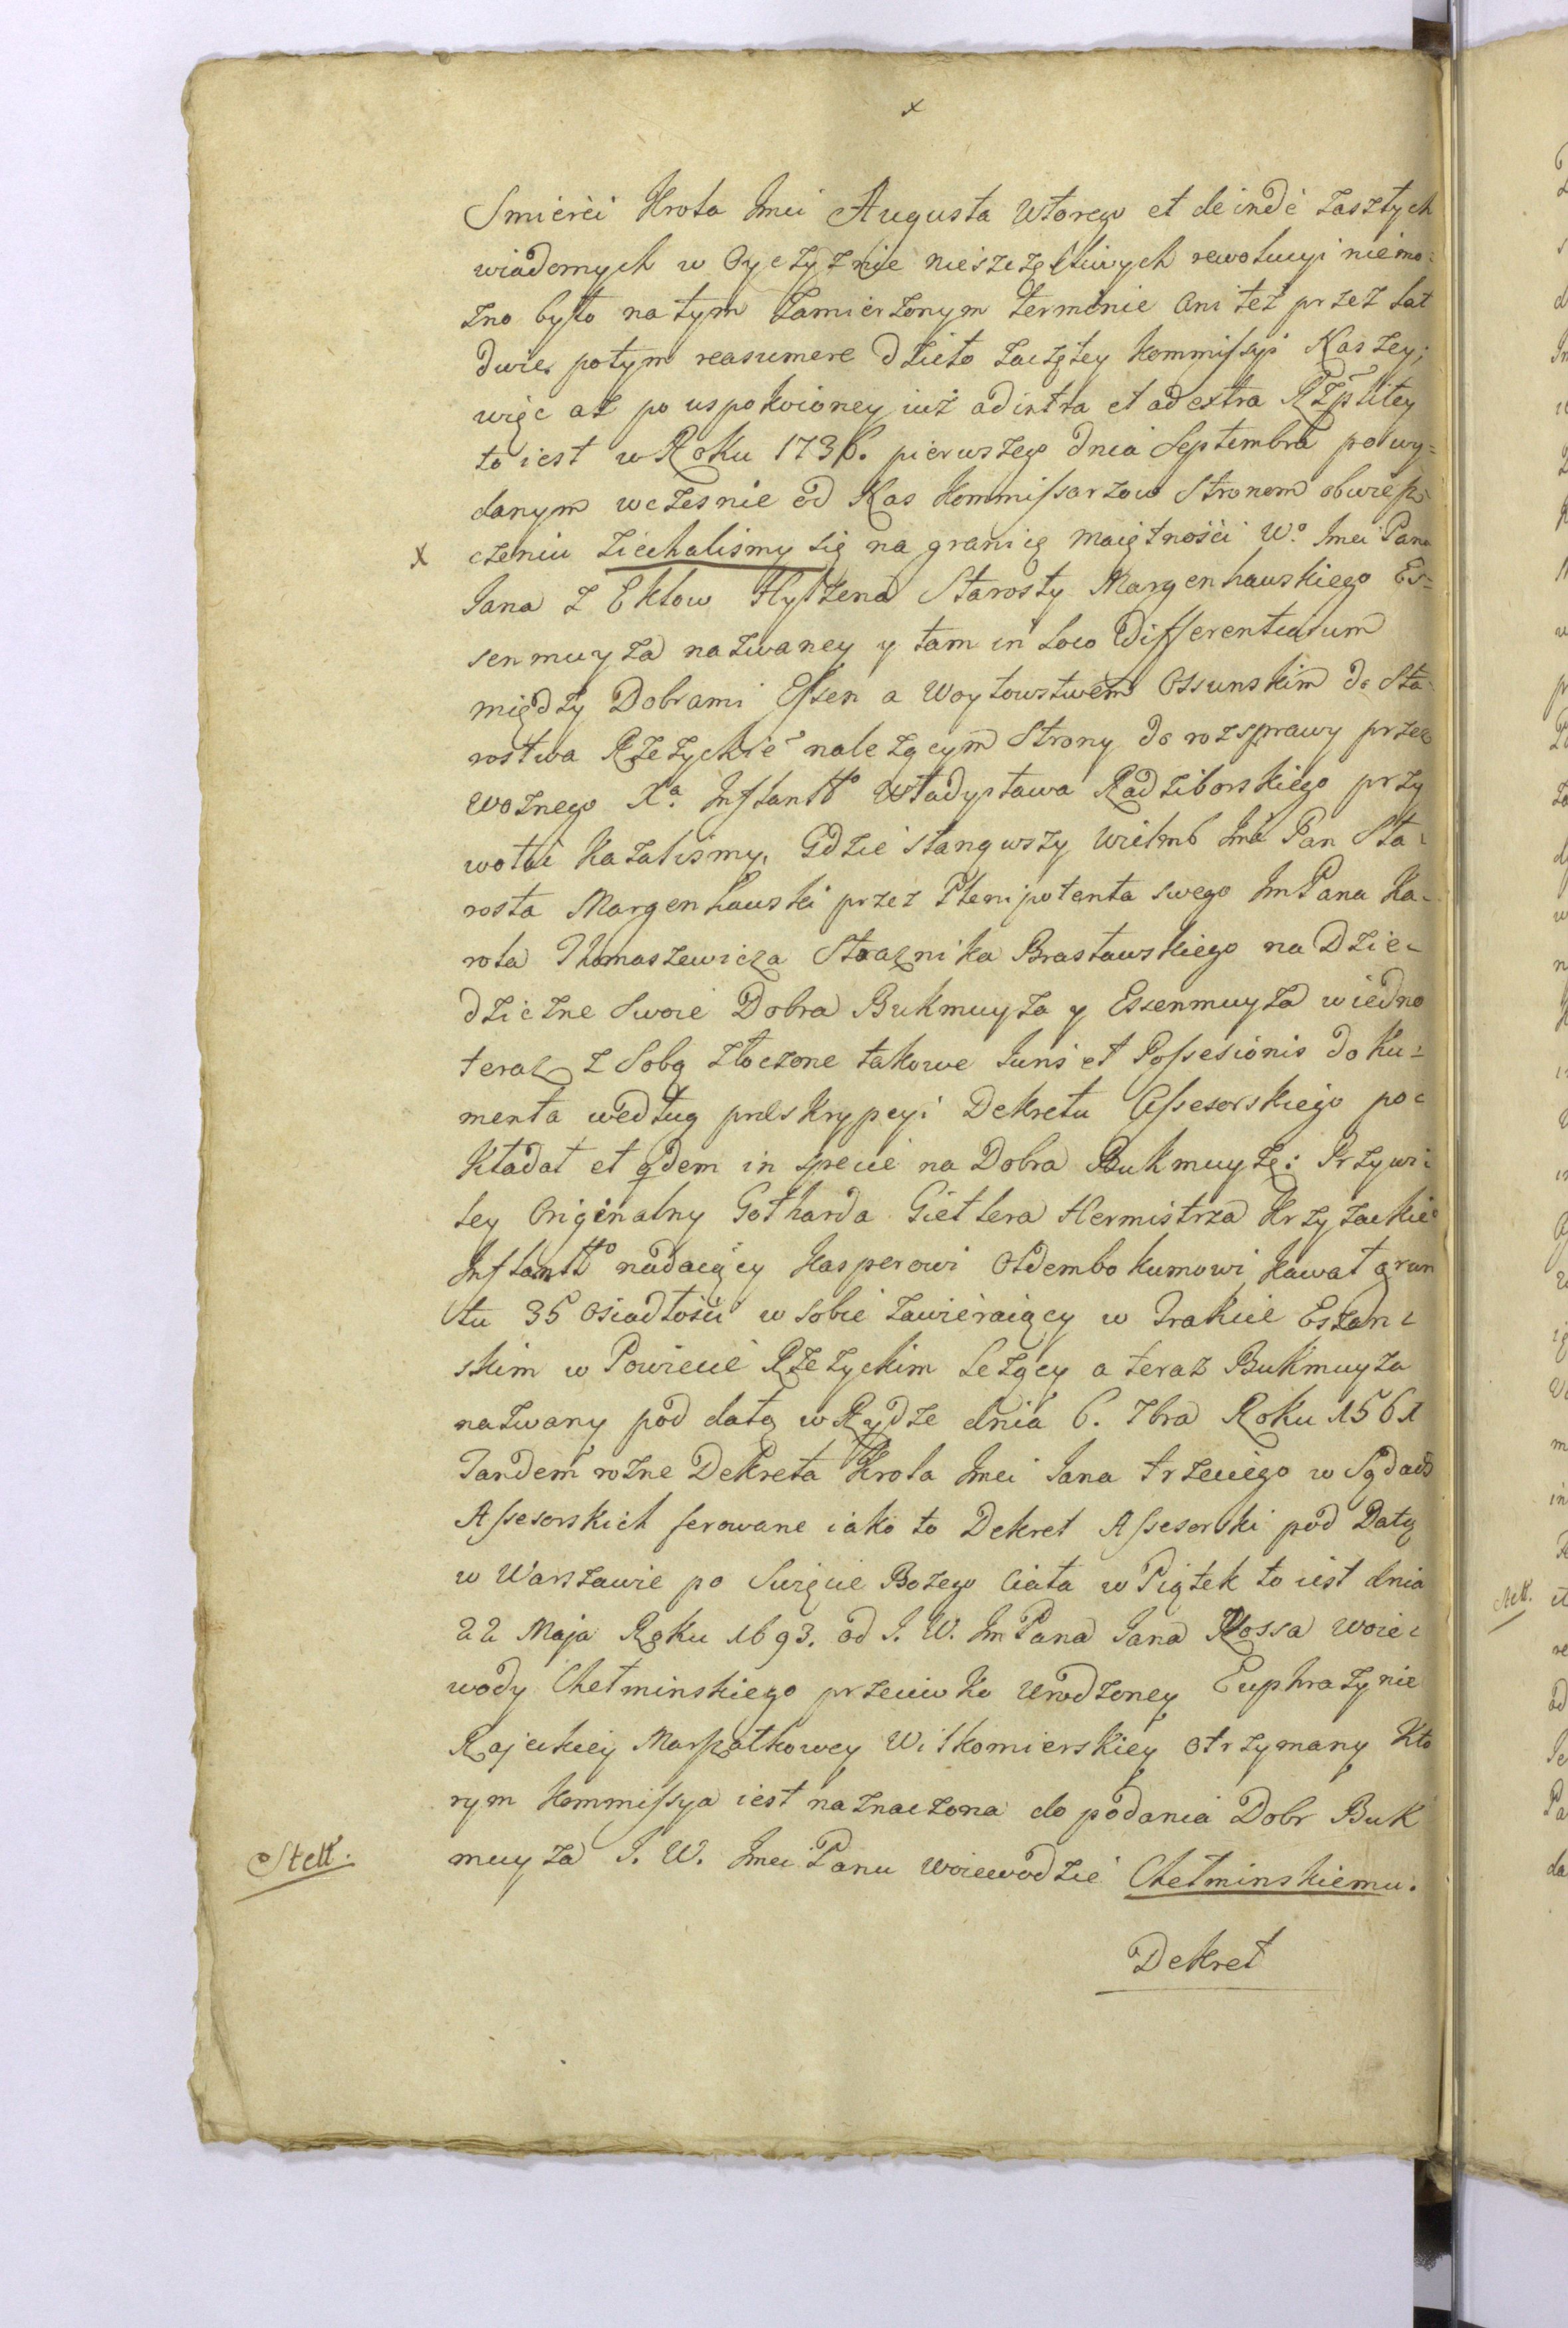 x
Smierci Krola Jmci Augusta Wtorego et deinde zaszłych
wiadomych w Oyczyznie nieszczęsliwych rewolucyi niemo-
zno było na tym zamierzonym terminie ani też przez lat
dwie potym reasumere dzieło zaczętey Kommissyi Naszey;
więc aż po uspokoioney iuż ad intra et ad extra Rzplitey
to iest w Roku 1736. pierwszego dnia Septembra po wy-
danym wczesnie od Nas Kommissarzow Stronom obwiesz-
x czeniu ziechalismy się na granicę maiętności Wo. Jmci Pana
Jana z Eklow Hylzena Starosty Margenhauskiego Es-
senmuyza nazwaney y tam in loco Differentiarum
między Dobrami Essen a Woytowstwem Ossunskim do Sta-
rostwa Rzezyckie° nalezącym Strony do rozsprawy przez
Woznego Xa. Inflantto Władysława Radziborskiego przy
wołać kazalismy, Gdzie stanąwszy Wielmo Jmć Pan Sta-
rosta Margenhauski przez Plenipotenta swego Jm Pana Ka-
rola Thomaszewicza Straznika Brasławskiego na Dzie-
dziczne Swoie Dobra Bukmuyza y Essenmuyza w iedno
teraz z Sobą złoczone takowe Juris et Possesionis doku-
menta według preskrypcyi Dekretu Assesorskiego po-
kładał et qdem in specie na Dobra Bukmuyzę: Przywi-
ley Originalny Gotharda Gietlera Hermistrza Krzyzackie°
Inflantto nadaiący Kasperowi Oldembokumowi kawał grun
tu 35 osiadłości w sobie zawieraiący w Trakcie Eszen-
skim w Powiecie Rzezyckim lezący a teraz Bukmuyza
nazwany pod datą w Rydze dnia 6. 7bra Roku 1561
Tandem rozne Dekreta Krola Jmci Jana trzeciego w Sądach
Assesorskich ferowane iako to Dekret Assesorski pod Datą
w Warszawie po Swięcie Bozego Ciała w Piątek to iest dnia
22 Maja Roku 1693. od J. W. Jm Pana Jana Kossa Woie-
wody Chełminskiego przeciwko Urodzoney Euphrazynie
Rajeckiey Marszałkowey Wiłkomierskiey otrzymany kto
rym Kommissya iest naznaczona do podania Dobr Buk
muyza J. W. Jmci Panu Woiewodzie Chełminskiemu.
Stett.
Dekret